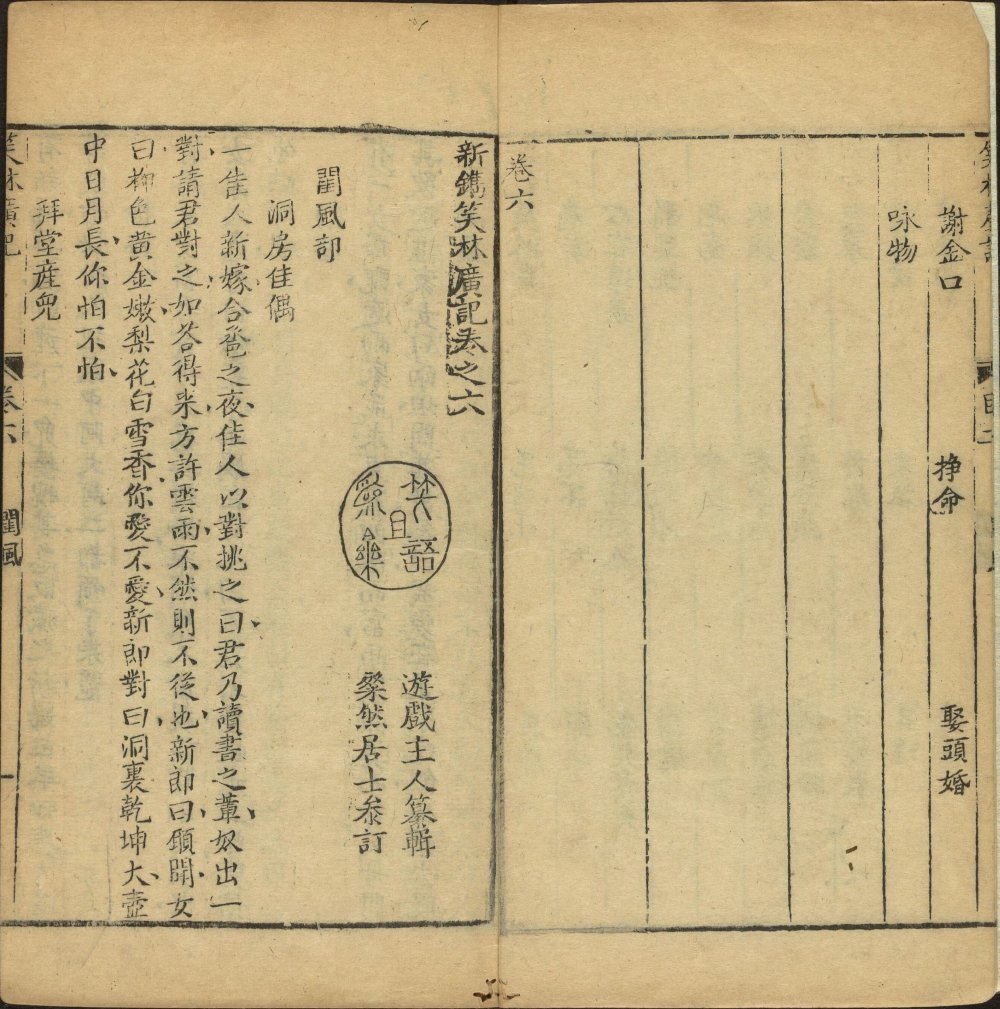 謝金口 掙命 娶頭婚
咏物
卷六
新鐫笑林廣記卷之六
遊戲主人纂輯
粲然居士叅訂
閨風部
洞房佳偶
一佳人新嫁合卺之夜佳人以對挑之曰君乃讀書之輩奴出一
對請君對之如答得来方許雲雨不然則不從也新郎曰願聞女
曰柳色黄金嫩梨花白雪香你愛不愛新郎對曰洞裏乾坤大壺
中日月長你怕不怕
拜堂産兒
笑林廣記 卷六 閨風 一